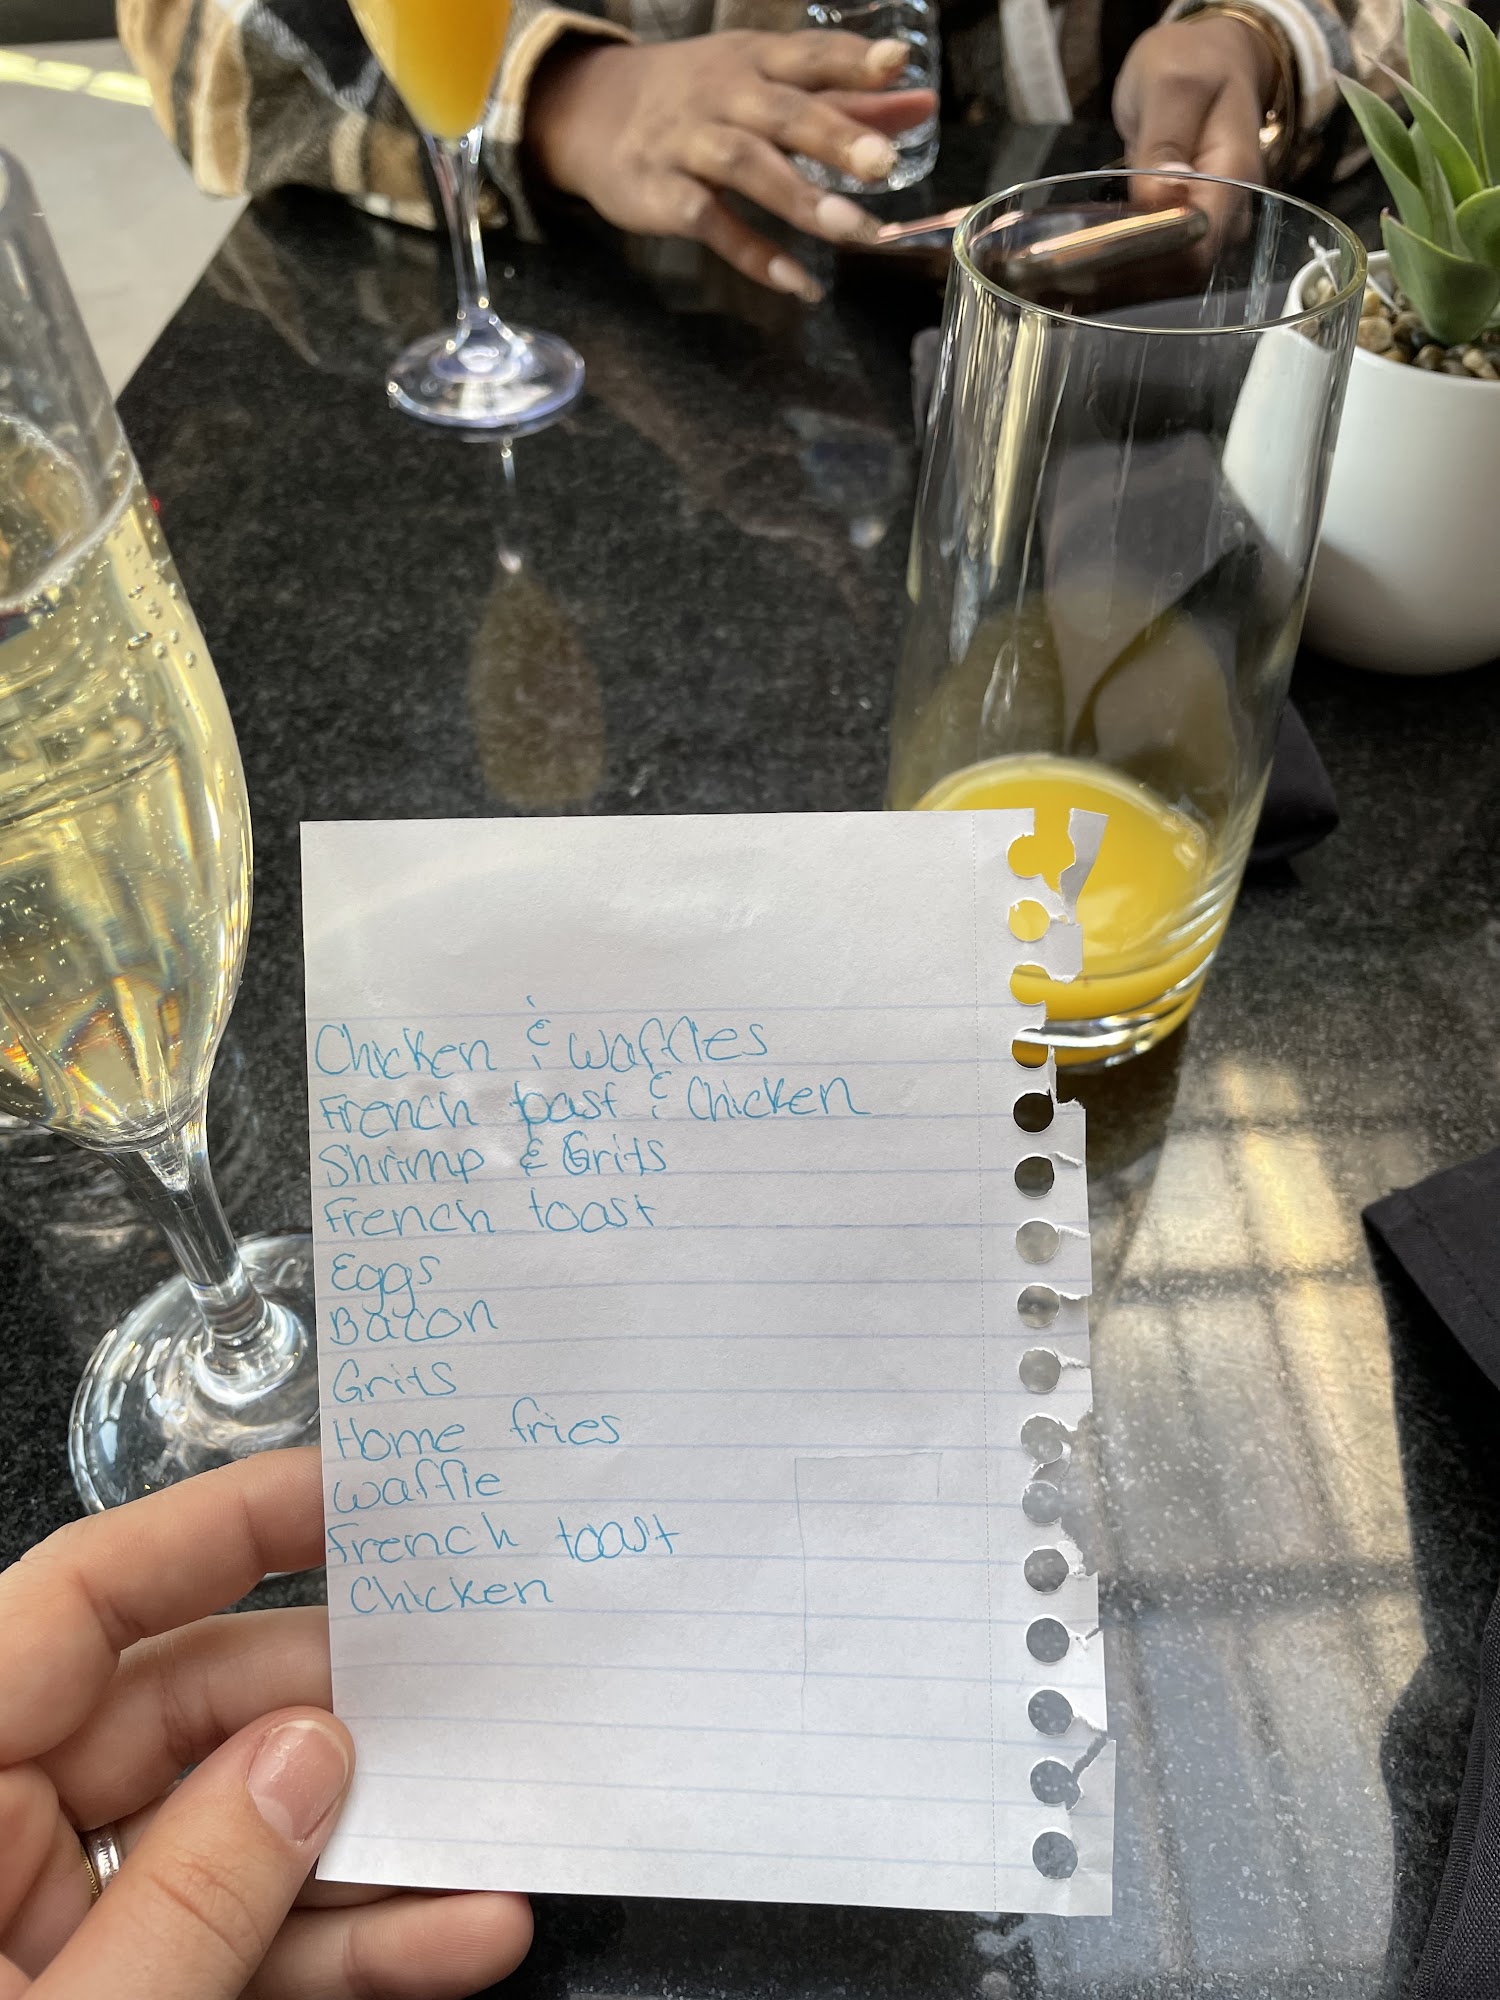 Chicken & Waffles
French toast & Chicken
Shrimp & Grits
French toast
Eggs
Bacon
Grits
Home fries
Waffle
French toast
Chicken